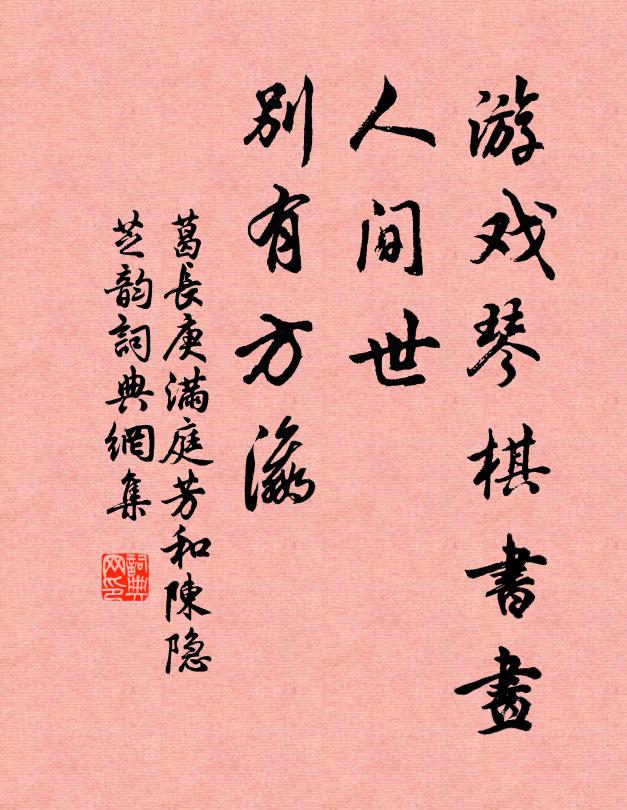 游戏琴棋書畫
人间世
别有方瀛
葛長庚满庭芳和陳隐
芝韵詞典網集
詞典网印